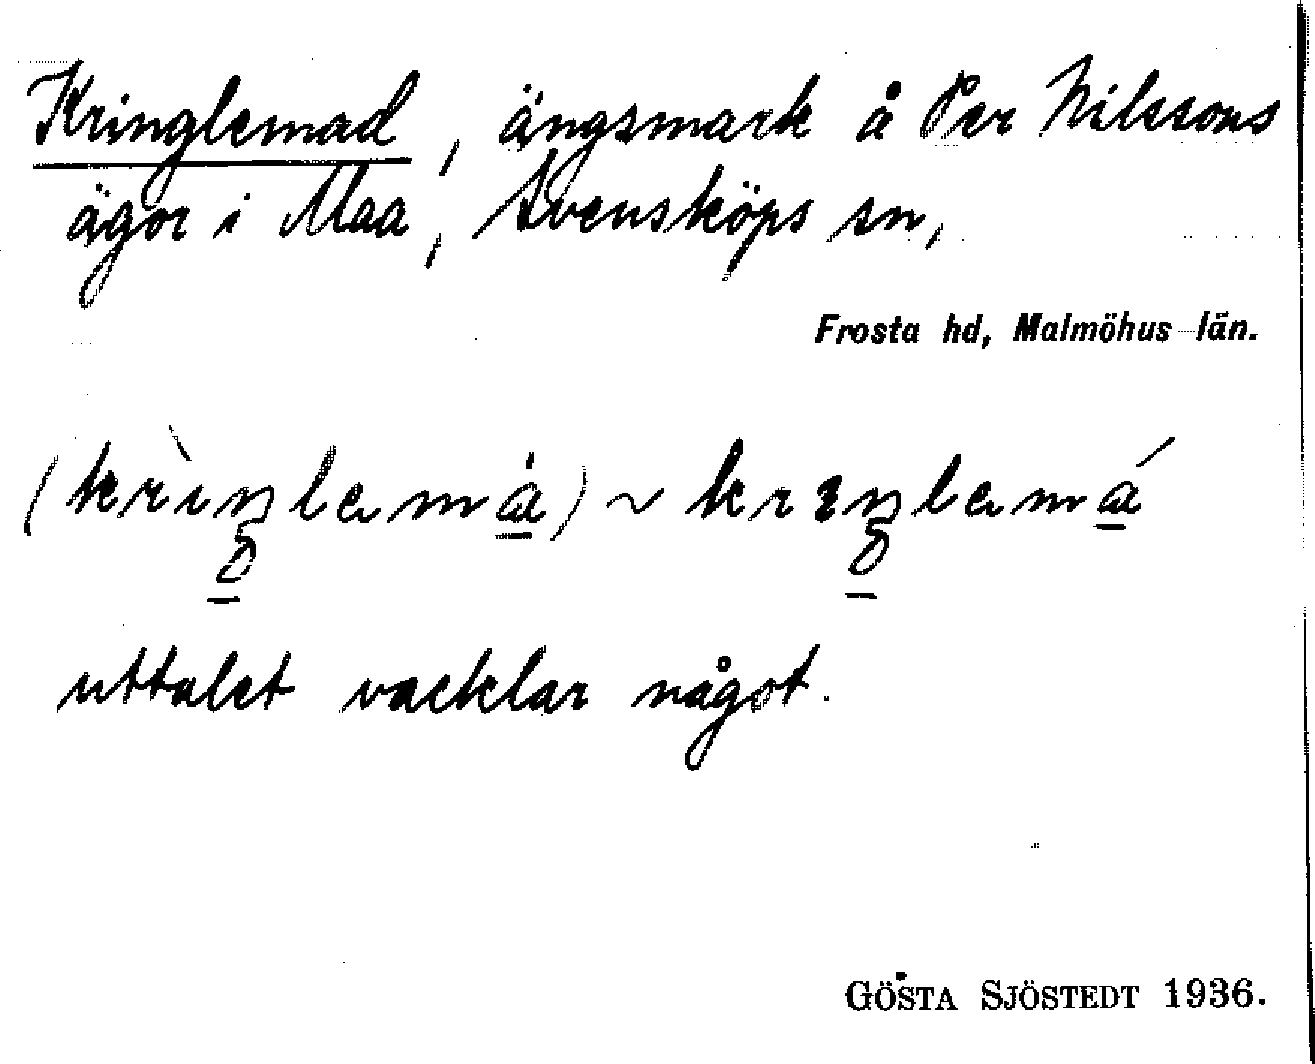 Kringlemad, ängsmark å Per Nilssons
ägor i Maa, Svensköps sn,
Frosta hd, Malmöhus län.
(krìŋlamá) ~ krɪŋlamá
uttalet vacklar något.
GÖSTA SJÖSTEDT 1936.